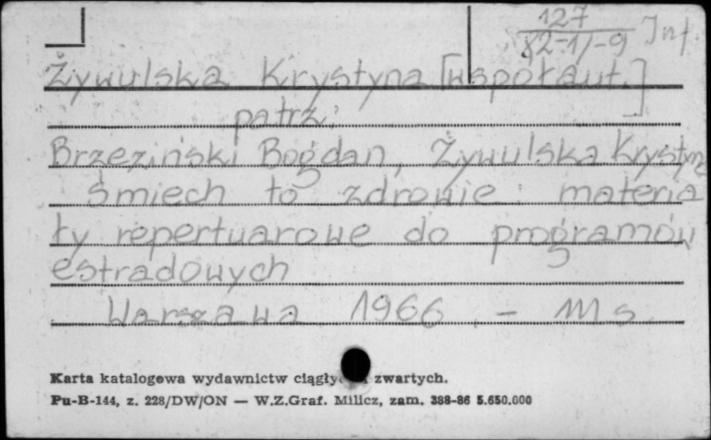 127
82-1/-9 Inf.
Żywulska Krystyna [współaut.]
patrz:
Brzeziński Bogdan, Żywulska Krystyna
Śmiech to zdrowie : materia
ły repertuarowe do programów
estradowych
Warszawa 1966 . - 111 s
Karta katalogowa wydawnictw ciągły zwartych.
Pu-B-144, z. 228/DW/ON — W.Z.Graf. Milicz, zam. 388-86 5.650.000